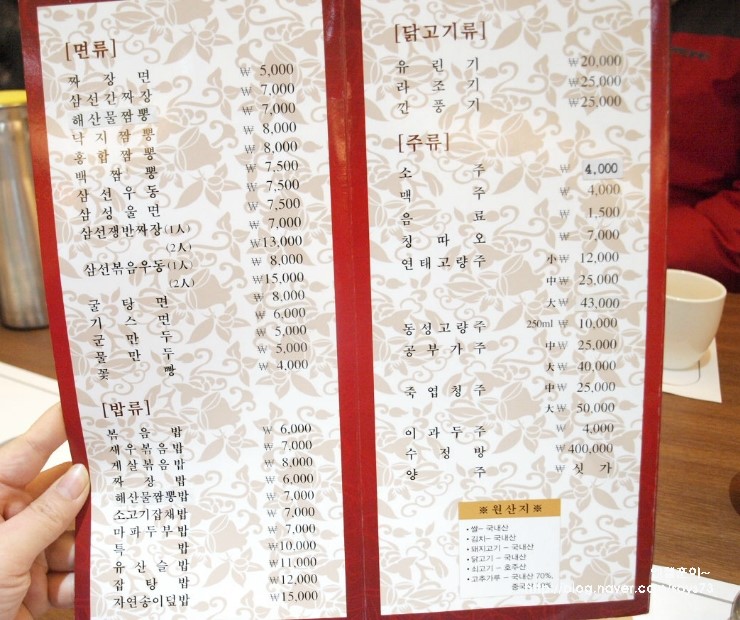 [면류]
짜 장 면 ₩ 5,000
삼선간짜장 ₩ 7,000
해산물짬뽕 ₩ 7,000
낙지짬뽕 ₩ 8,000
홍합짬뽕 ₩ 8,000
백 짬 뽕 ₩ 7,500
삼선우동 ₩ 7,500
삼성울면 ₩ 7,500
삼선쟁반짜장(1人) ₩ 7,000
(2人) ₩13,000
삼선볶음우동(1人) ₩ 8,000
(2人) ₩15,000
굴 탕 면 ₩ 8,000
기 스 면 ₩ 6,000
군 만 두 ₩ 5,000
물 만 두 ₩ 5,000
꽃 빵 ₩ 4,000
[밥류]
볶 음 밥 ₩ 6,000
새우볶음밥 ₩ 7,000
게살볶음밥 ₩ 8,000
짜 장 밥 ₩ 6,000
해산물짬뽕밥 ₩ 7,000
소고기잡채밥 ₩ 7,000
마파두부밥 ₩ 7,000
특 밥 ₩10,000
유산슬밥 ₩11,000
잡 탕 밥 ₩12,000
자연송이덮밥 ₩15,000
[닭고기류]
유 린 기 ₩20,000
라 조 기 ₩25,000
깐 풍 기 ₩25,000
[주류]
소 주 ₩ 4,000
맥 주 ₩ 4,000
음 료 ₩ 1,500
칭 따 오 ₩ 7,000
연태고량주 小₩ 12,000
中₩ 25,000
大₩ 43,000
동성고량주 250ml ₩ 10,000
공부가주 中₩ 25,000
大₩ 40,000
죽엽청주 中₩ 25,000
大₩ 50,000
이과두주 ₩ 4,000
수 정 방 ₩400,000
양 주 ₩ 싯 가
※원산지※
• 쌀- 국내산
• 김치- 국내산
• 돼지고기 - 국내산
• 닭고기 - 국내산
• 쇠고기 - 호주산
• 고추가루 - 국내산 70%,
중국산